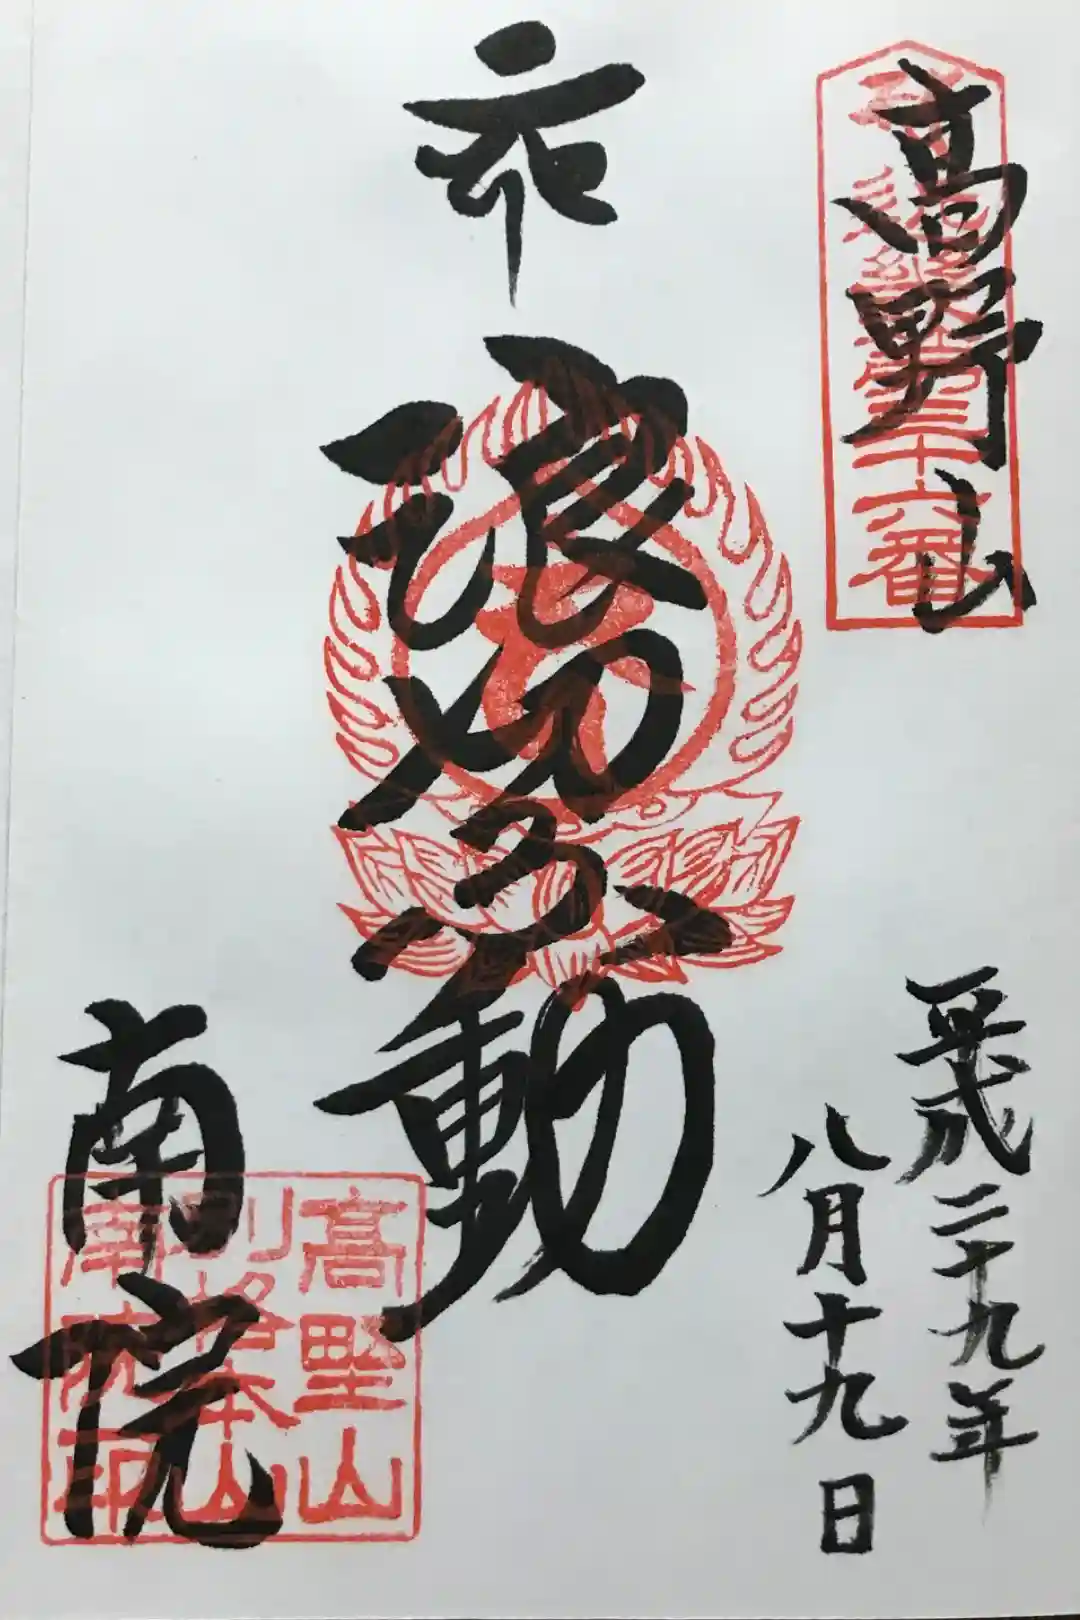 高野山
第三十六番
平成二十九年
八月十九日
浪切不動
南院
高野山
別格本山
南院印